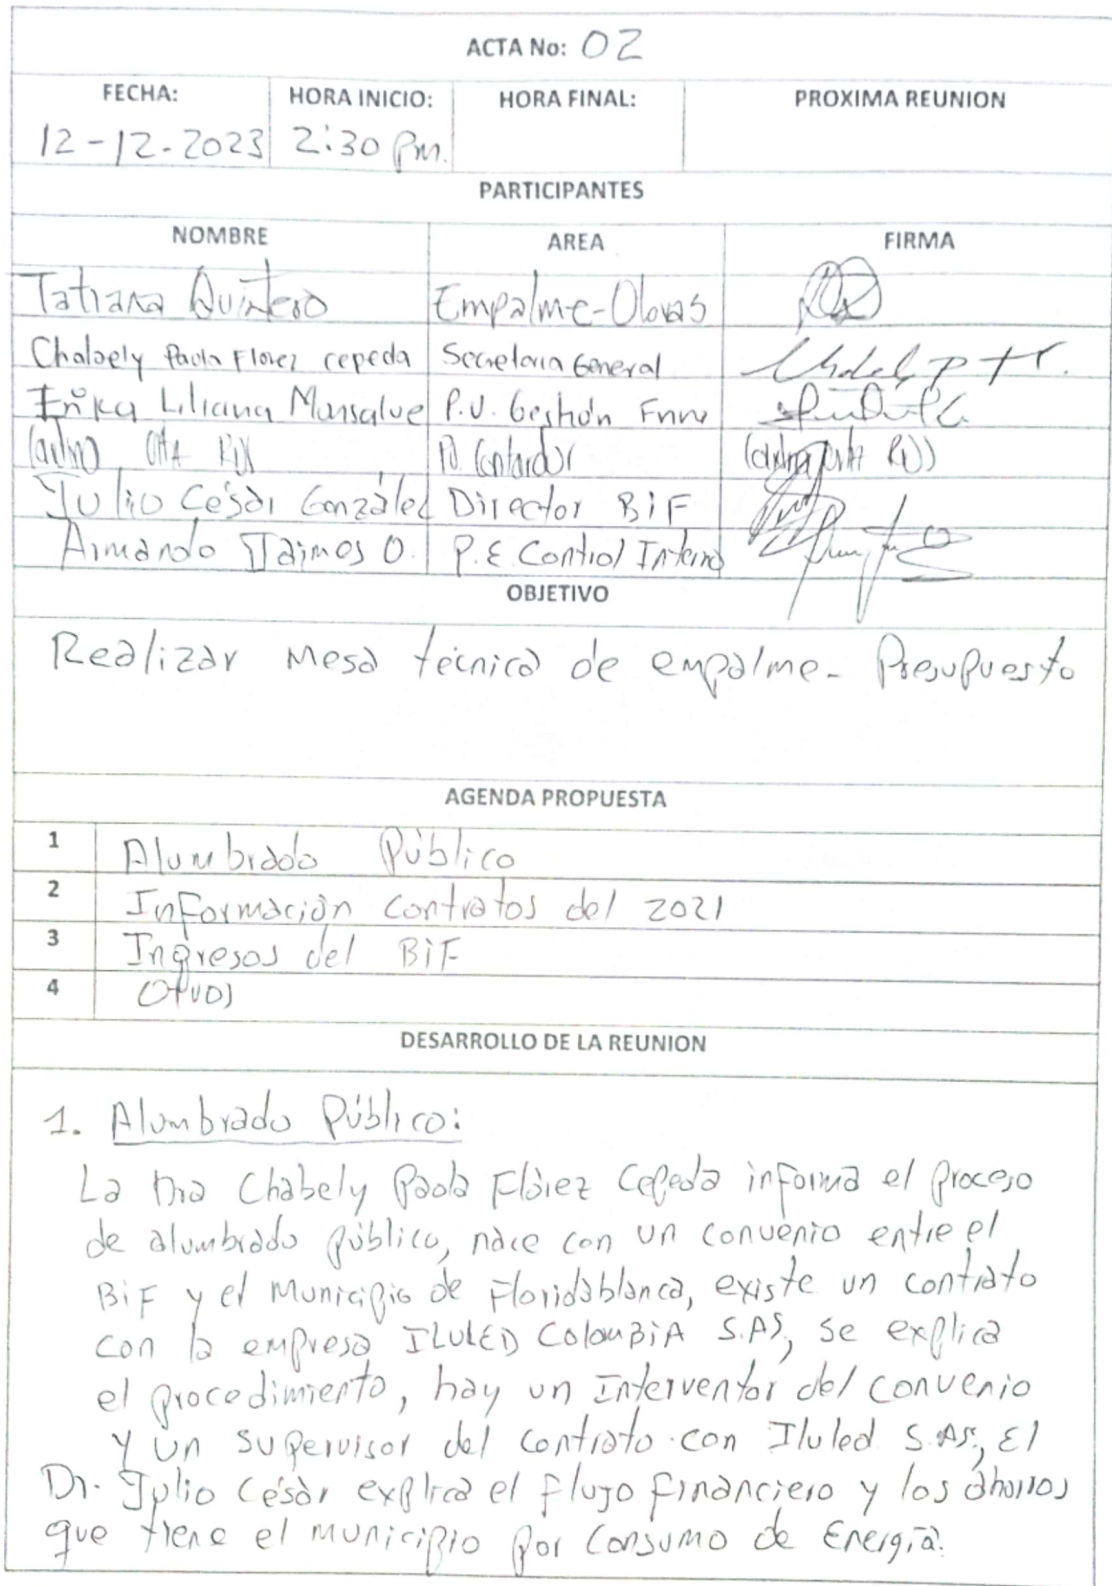 ACTA No: 02
FECHA: HORA INICIO: HORA FINAL: PROXIMA REUNION
12-12-2023 2:30 Pm.
PARTICIPANTES
NOMBRE AREA FIRMA
Tatiana Quintero Empalme-Obras
Chabely Paola Florez cepeda Secretaria General
Erika Liliana Monsalve P.U. Gestión
Contador
Julio César González Director BiF
Armando Jaimes O. P.E. Control Interno
OBJETIVO
Realizar Mesa técnica de empalme- Presupuesto
AGENDA PROPUESTA
1 Alumbrado Público
2 Información contratos del 2021
3 Ingresos del BiF
4 Otros
DESARROLLO DE LA REUNION
1. Alumbrado Público:
La Dra Chabely Paola Flórez Cepeda informa el proceso
de alumbrado público, nace con un convenio entre el
BiF y el Municipio de Floridablanca, existe un contrato
con la empresa ILULED ColomBiA S.AS, se explica
el procedimiento, hay un Interventor del convenio
y un supervisor del contrato con Iluled S.AS, El
Dr. Julio César explica el flujo financiero y los ahorros
que tiene el municipio por Consumo de Energía.